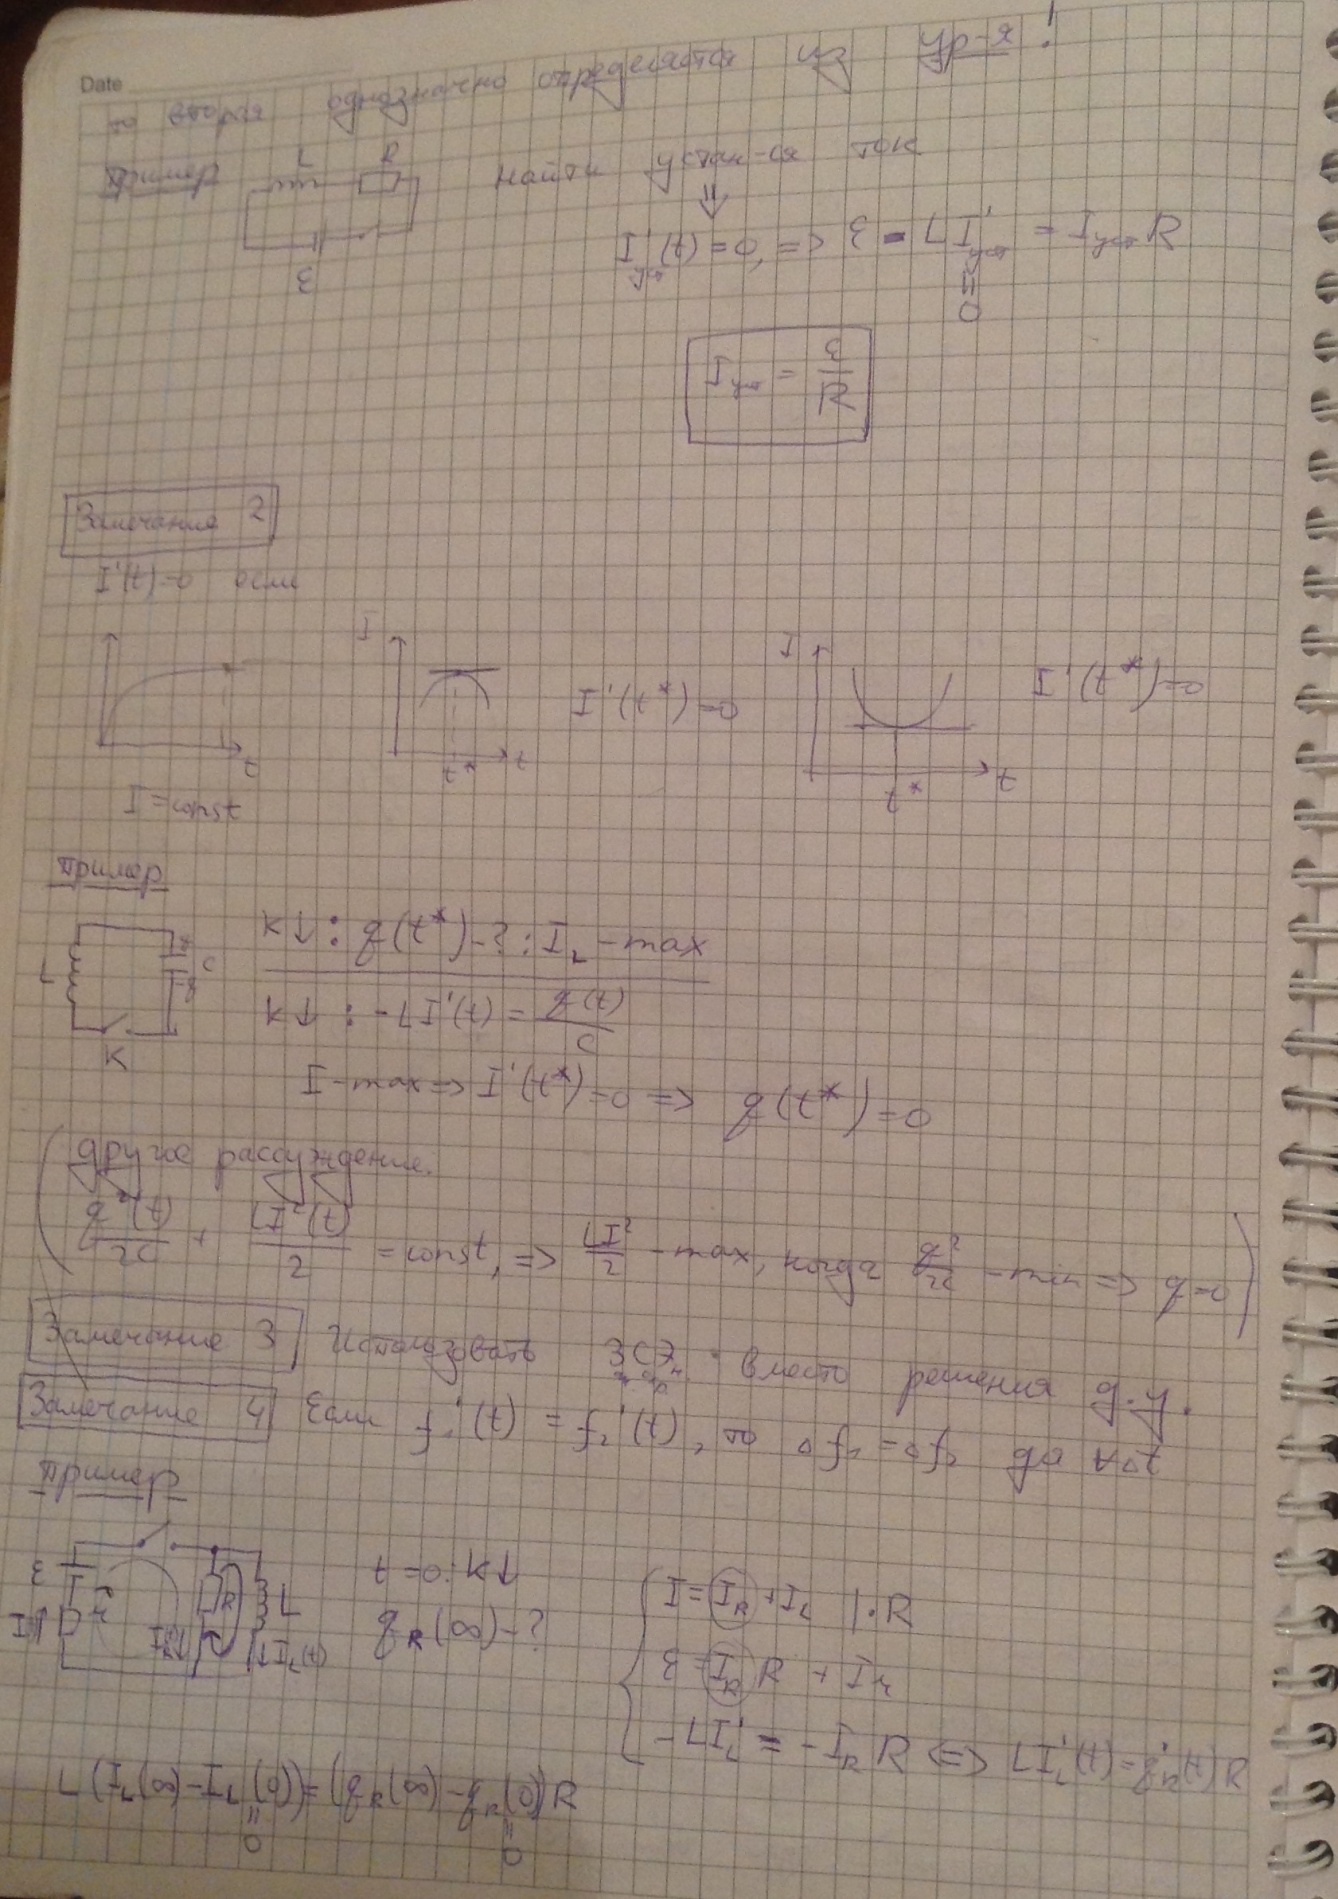 Date
то вторая однозначно определяется из ур-я!
Пример L R Найти устан-ся ток
ℰ
I'уст(t)=0, => ℰ - LI'уст = IустR
0
Iуст = ℰ/R
Замечание 2
I'(t)=0 если
I I
I'(t*)=0 I'(t*)=0
t t* t t* t
I=const
Пример
K↓: q(t*)-?: I_L - max
L C q
K↓: -LI'(t) = q(t)/C
K
I-max => I'(t*)=0 => q(t*)=0
(другое рассуждение.
q²(t)/2C + LI²(t)/2 = const, => LI²/2 - max, когда q²/2C - min => q=0)
Замечание 3 Использовать ЗСЭ вместо решения д.у.
Замечание 4 Если f₁'(t) = f₂'(t), то Δf₁=Δf₂ до ∀Δt
Пример
ℰ r R L
I↑ I_R↓ ↓I_L(t)
t=0: K↓
q_R(∞)-?
I = I_R + I_L |·R
ℰ = I_R R + Ir
-LI'_L = -I_R R <=> LI'_L(t) = q'_R(t)R
L(I_L(∞)-I_L(0))=(q_R(∞)-q_R(0))R
0 0